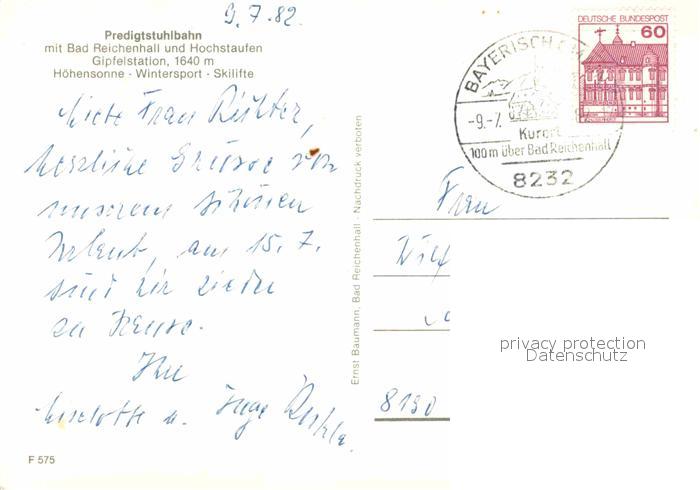 9.7.82.
Predigtstuhlbahn
mit Bad Reichenhall und Hochstaufen
Gipfelstation, 1640 m
Höhensonne · Wintersport · Skilifte
Liebe Frau Richter,
herzliche Grüsse von
unserem schönen
Urlaub, am 15.7.
sind wir wieder
zu Hause.
Ihre
Liselotte u. Inge
F 575
Ernst Baumann, Bad Reichenhall · Nachdruck verboten
DEUTSCHE BUNDESPOST
60
BAYERISCH GMAIN
-9.-7.
Kurort
100m über Bad Reichenhall
8232
Frau
privacy protection
Datenschutz